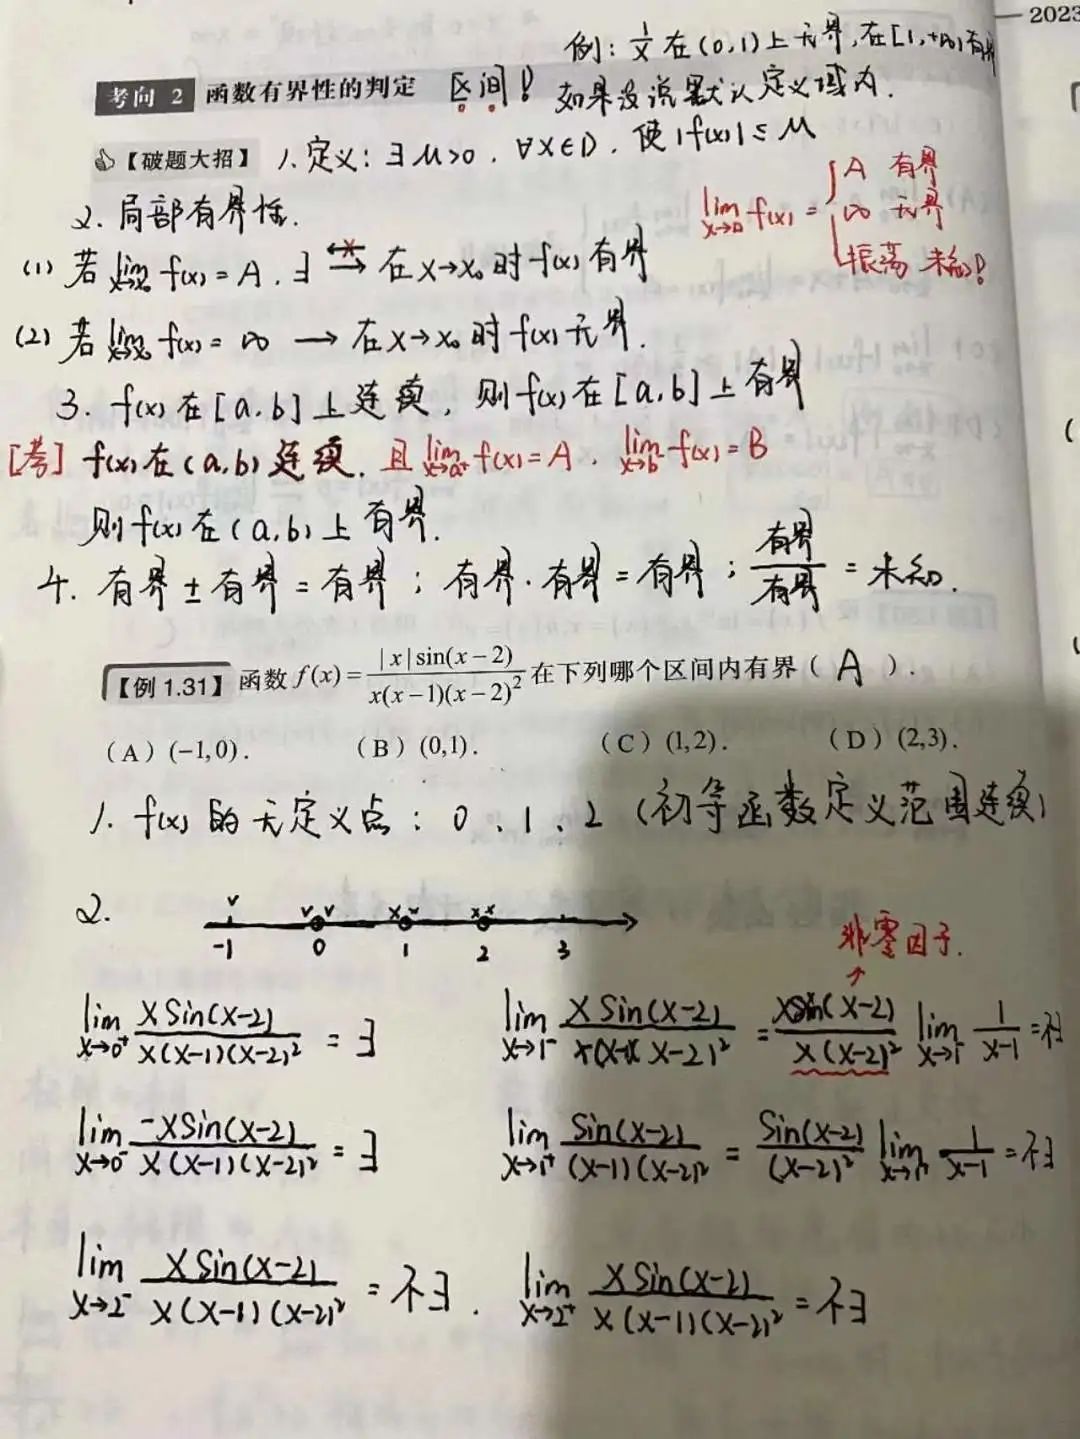 2023
例：1/x 在(0,1)上无界,在[1,+∞)有界
考向 2 函数有界性的判定 区间！ 如果没说默认定义域内.
【破题大招】 1.定义：∃M>0，∀x∈D，使|f(x)|≤M
2. 局部有界性.
lim x→a f(x) = { A 有界
∞ 无界
振荡 未知！
(1) 若 lim x→x₀ f(x)=A，∃ ⇄ 在x→x₀时f(x)有界
(2) 若 lim x→x₀ f(x)=∞ → 在x→x₀时f(x)无界.
3. f(x)在[a,b]上连续，则f(x)在[a,b]上有界
f(x)在(a,b)连续，且 lim x→a⁺ f(x)=A，lim x→b⁻ f(x)=B
则f(x)在(a,b)上有界.
4. 有界±有界=有界；有界·有界=有界；有界/有界=未知.
【例 1.31】函数 f(x)= |x|sin(x-2) / x(x-1)(x-2)² 在下列哪个区间内有界（ A ）.
（A）(-1,0). （B）(0,1). （C）(1,2). （D）(2,3).
1. f(x)的无定义点：0、1、2（初等函数定义范围连续）
2. -1 0 1 2 3
非零因子.
lim x→0⁺ xSin(x-2) / x(x-1)(x-2)² = ∃ lim x→1⁻ xSin(x-2) / x(x-1)(x-2)² = xSin(x-2) / x(x-2)² lim x→1⁻ 1/(x-1) = 不∃
lim x→0⁻ -xSin(x-2) / x(x-1)(x-2)² = ∃ lim x→1⁺ Sin(x-2) / (x-1)(x-2)² = Sin(x-2) / (x-2)² lim x→1⁺ 1/(x-1) = 不∃
lim x→2⁻ xSin(x-2) / x(x-1)(x-2)² = 不∃. lim x→2⁺ xSin(x-2) / x(x-1)(x-2)² = 不∃